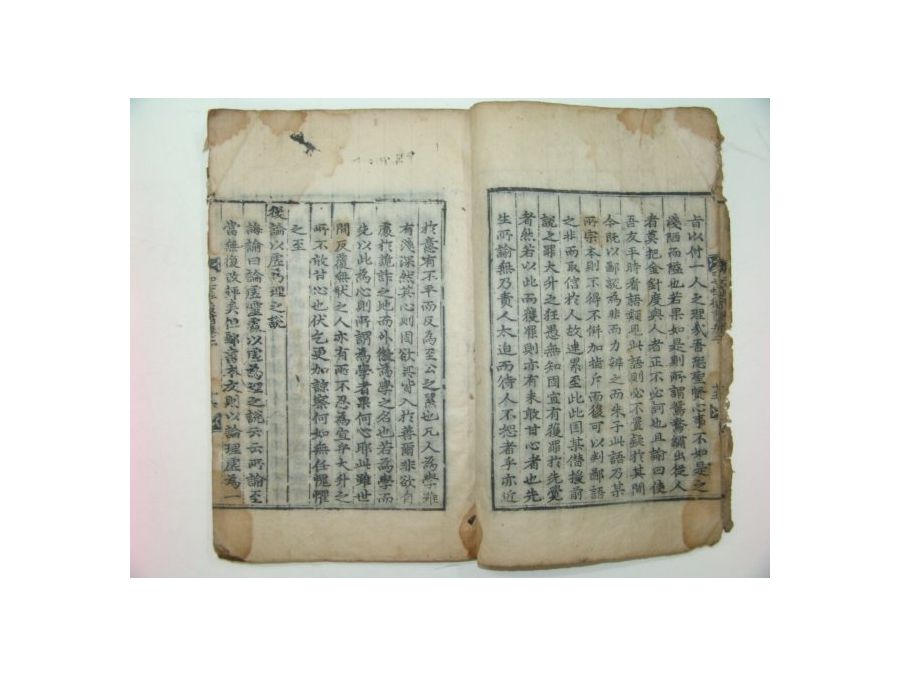 旨以付一人之理哉吾恐聖賢心事不如是之
淺陋而隘也若果如是則所謂鴛鴦譜出從人
者莫把金針度與人者正不必訶也且諭曰使
吾友平時看語類見此語則必不置疑於其間
今既以鄙說為非而力辨之而朱子此語乃某
所宗本則不得不倂加指斥而後可以判鄙語
之非而取信於人故連累至此此固某僭援前
說之罪大升之狂愚無知固宜有獲罪於先覺
者然若以此而獲罪則亦有未敢甘心者也先
生所諭無乃責人太迫而待人不恕者乎亦近
於意有不平而反為至公之累也凡人為學雖
有淺深然其心則固欲其皆入於善爾非欲自
處於詭詐之地而外徼為學之名也若為學而
先以此為心則所謂為學者果何心耶此雖世
間反覆無狀之人亦有所不忍為宜乎大升之
所不敢甘心也伏乞更加諒察何如無任愧懼
之至
後論以虛為理之說
誨諭曰論虛靈處以虛為理之說云云所諭至
當無復改評矣但鄙言本文則以論理虛為一